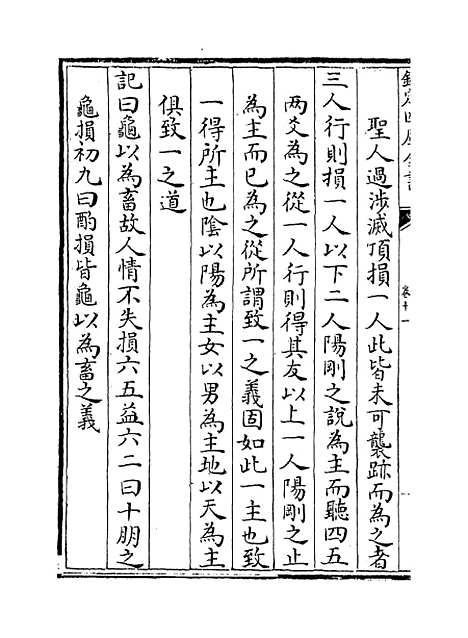 欽定四庫全書
卷十一
聖人過涉滅頂損一人此皆未可襲跡而為之者
三人行則損一人以下二人陽剛之說為主而聽四五
兩爻為之從一人行則得其友以上一人陽剛之止
為主而已為之從所謂致一之義固如此一主也致
一得所主也陰以陽為主女以男為主地以天為主
俱致一之道
記曰龜以為畜故人情不失損六五益六二曰十朋之
龜損初九曰酌損皆龜以為畜之義